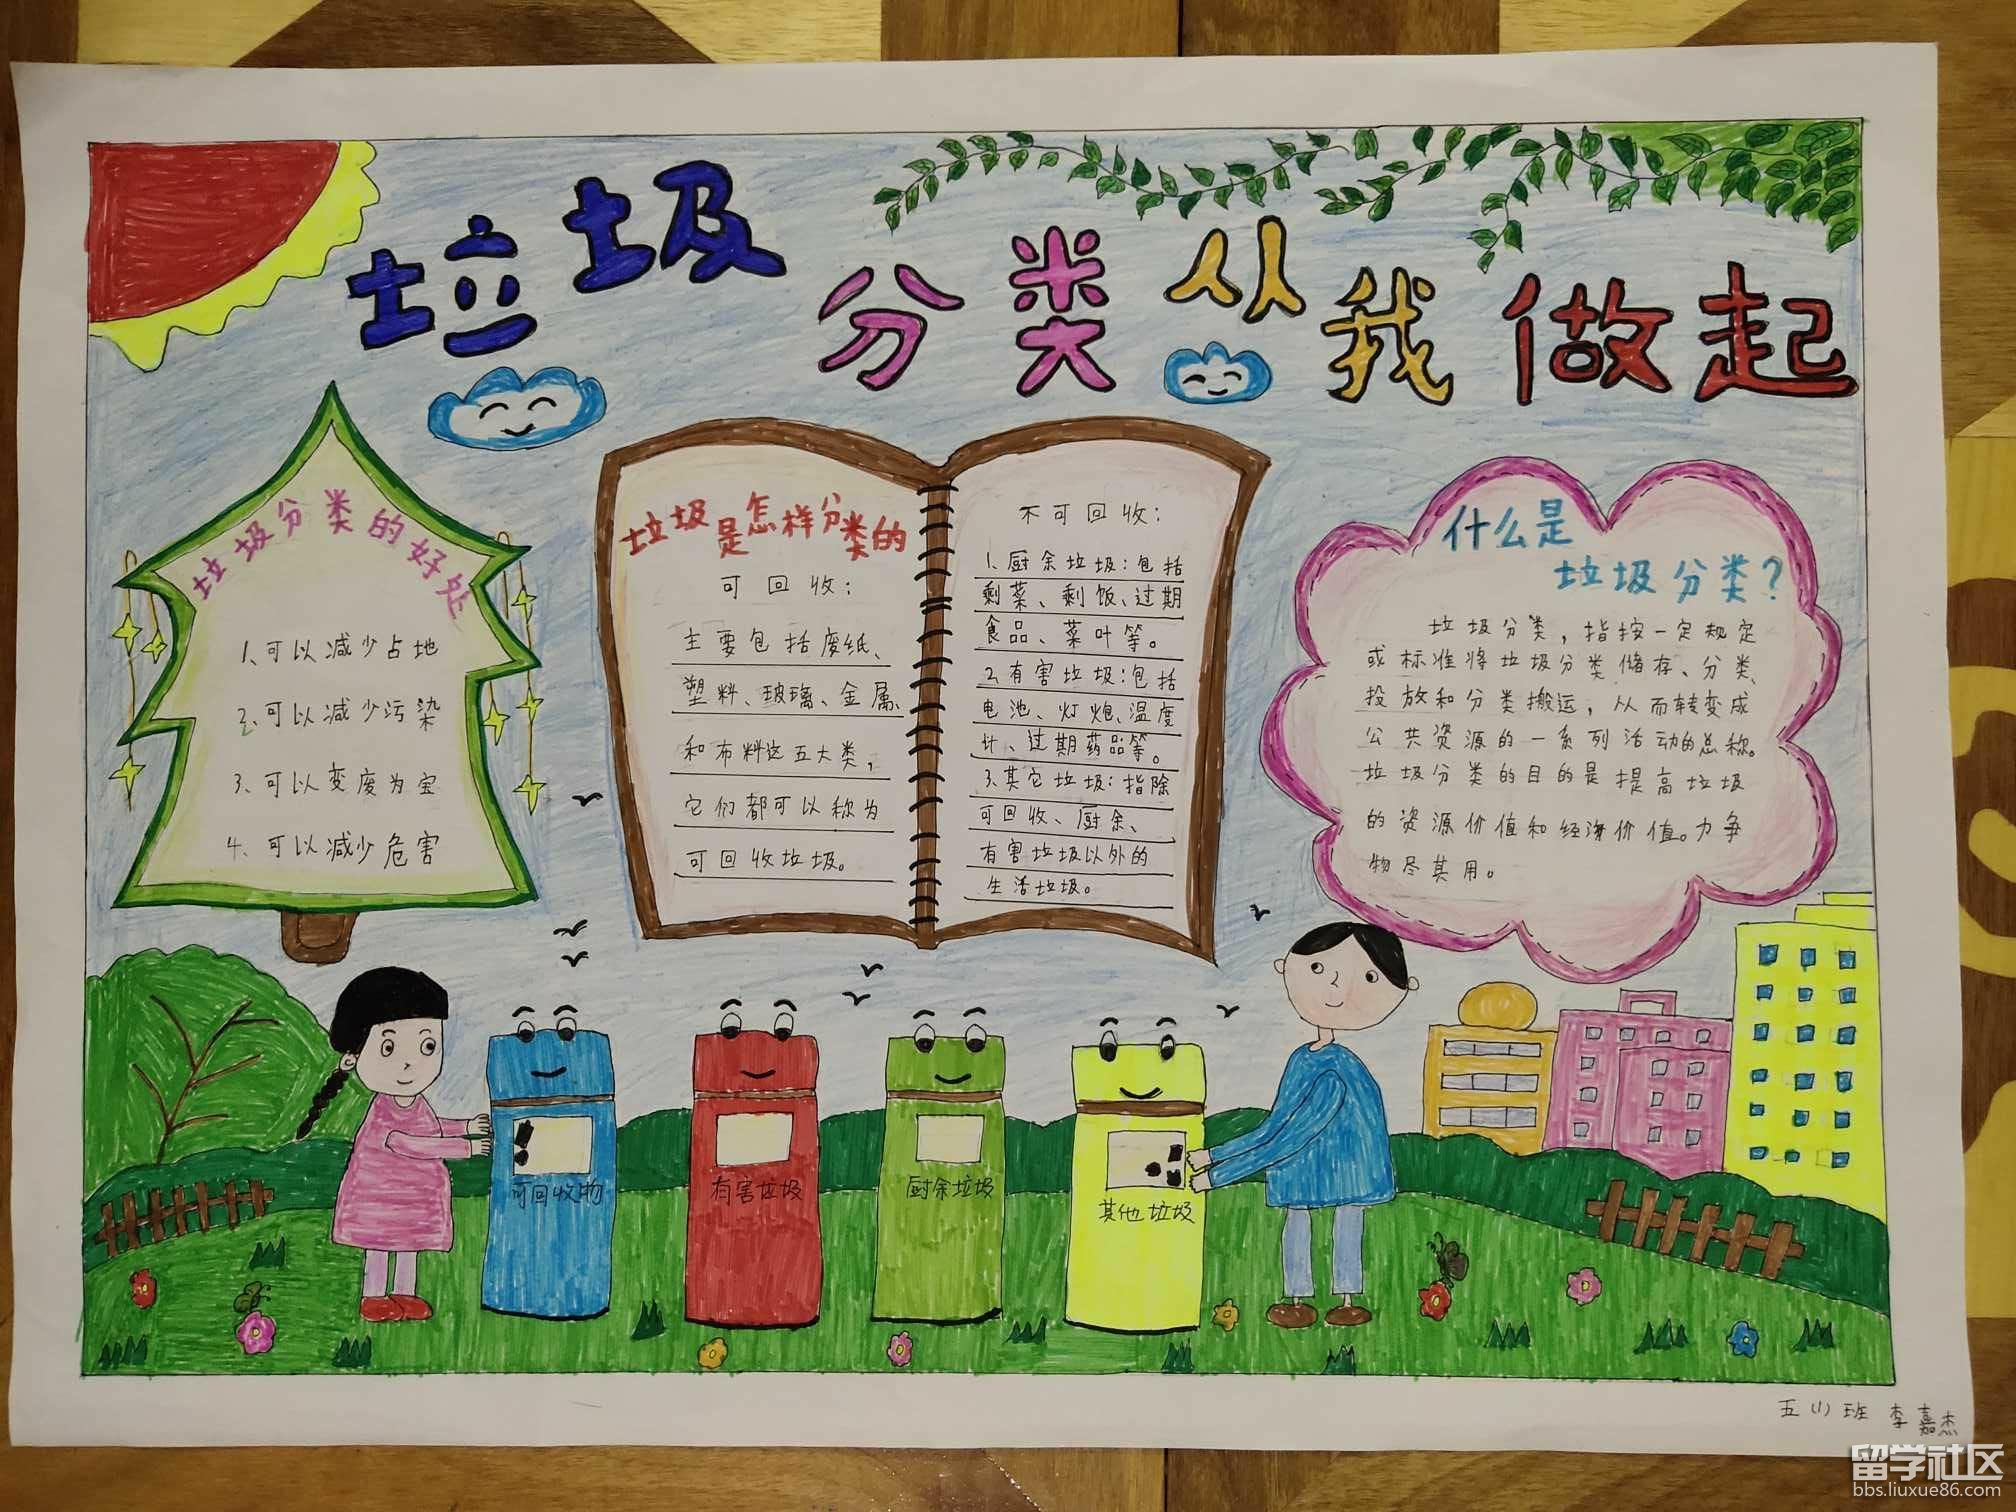 垃圾分类从我做起
垃圾分类的好处
1、可以减少占地
2、可以减少污染
3、可以变废为宝
4、可以减少危害
垃圾是怎样分类的
可回收:
主要包括废纸、
塑料、玻璃、金属、
和布料这五大类,
它们都可以称为
可回收垃圾。
不可回收:
1、厨余垃圾:包括
剩菜、剩饭、过期
食品、菜叶等。
2、有害垃圾:包括
电池、灯炮、温度
计、过期药品等。
3、其它垃圾:指除
可回收、厨余、
有害垃圾以外的
生活垃圾。
什么是
垃圾分类?
垃圾分类,指按一定规定
或标准将垃圾分类储存、分类、
投放和分类搬运,从而转变成
公共资源的一系列活动的总称。
垃圾分类的目的是提高垃圾
的资源价值和经济价值。力争
物尽其用。
可回收物
有害垃圾
厨余垃圾
其他垃圾
五(1)班 李嘉杰
留学社区
bbs.liuxue86.com